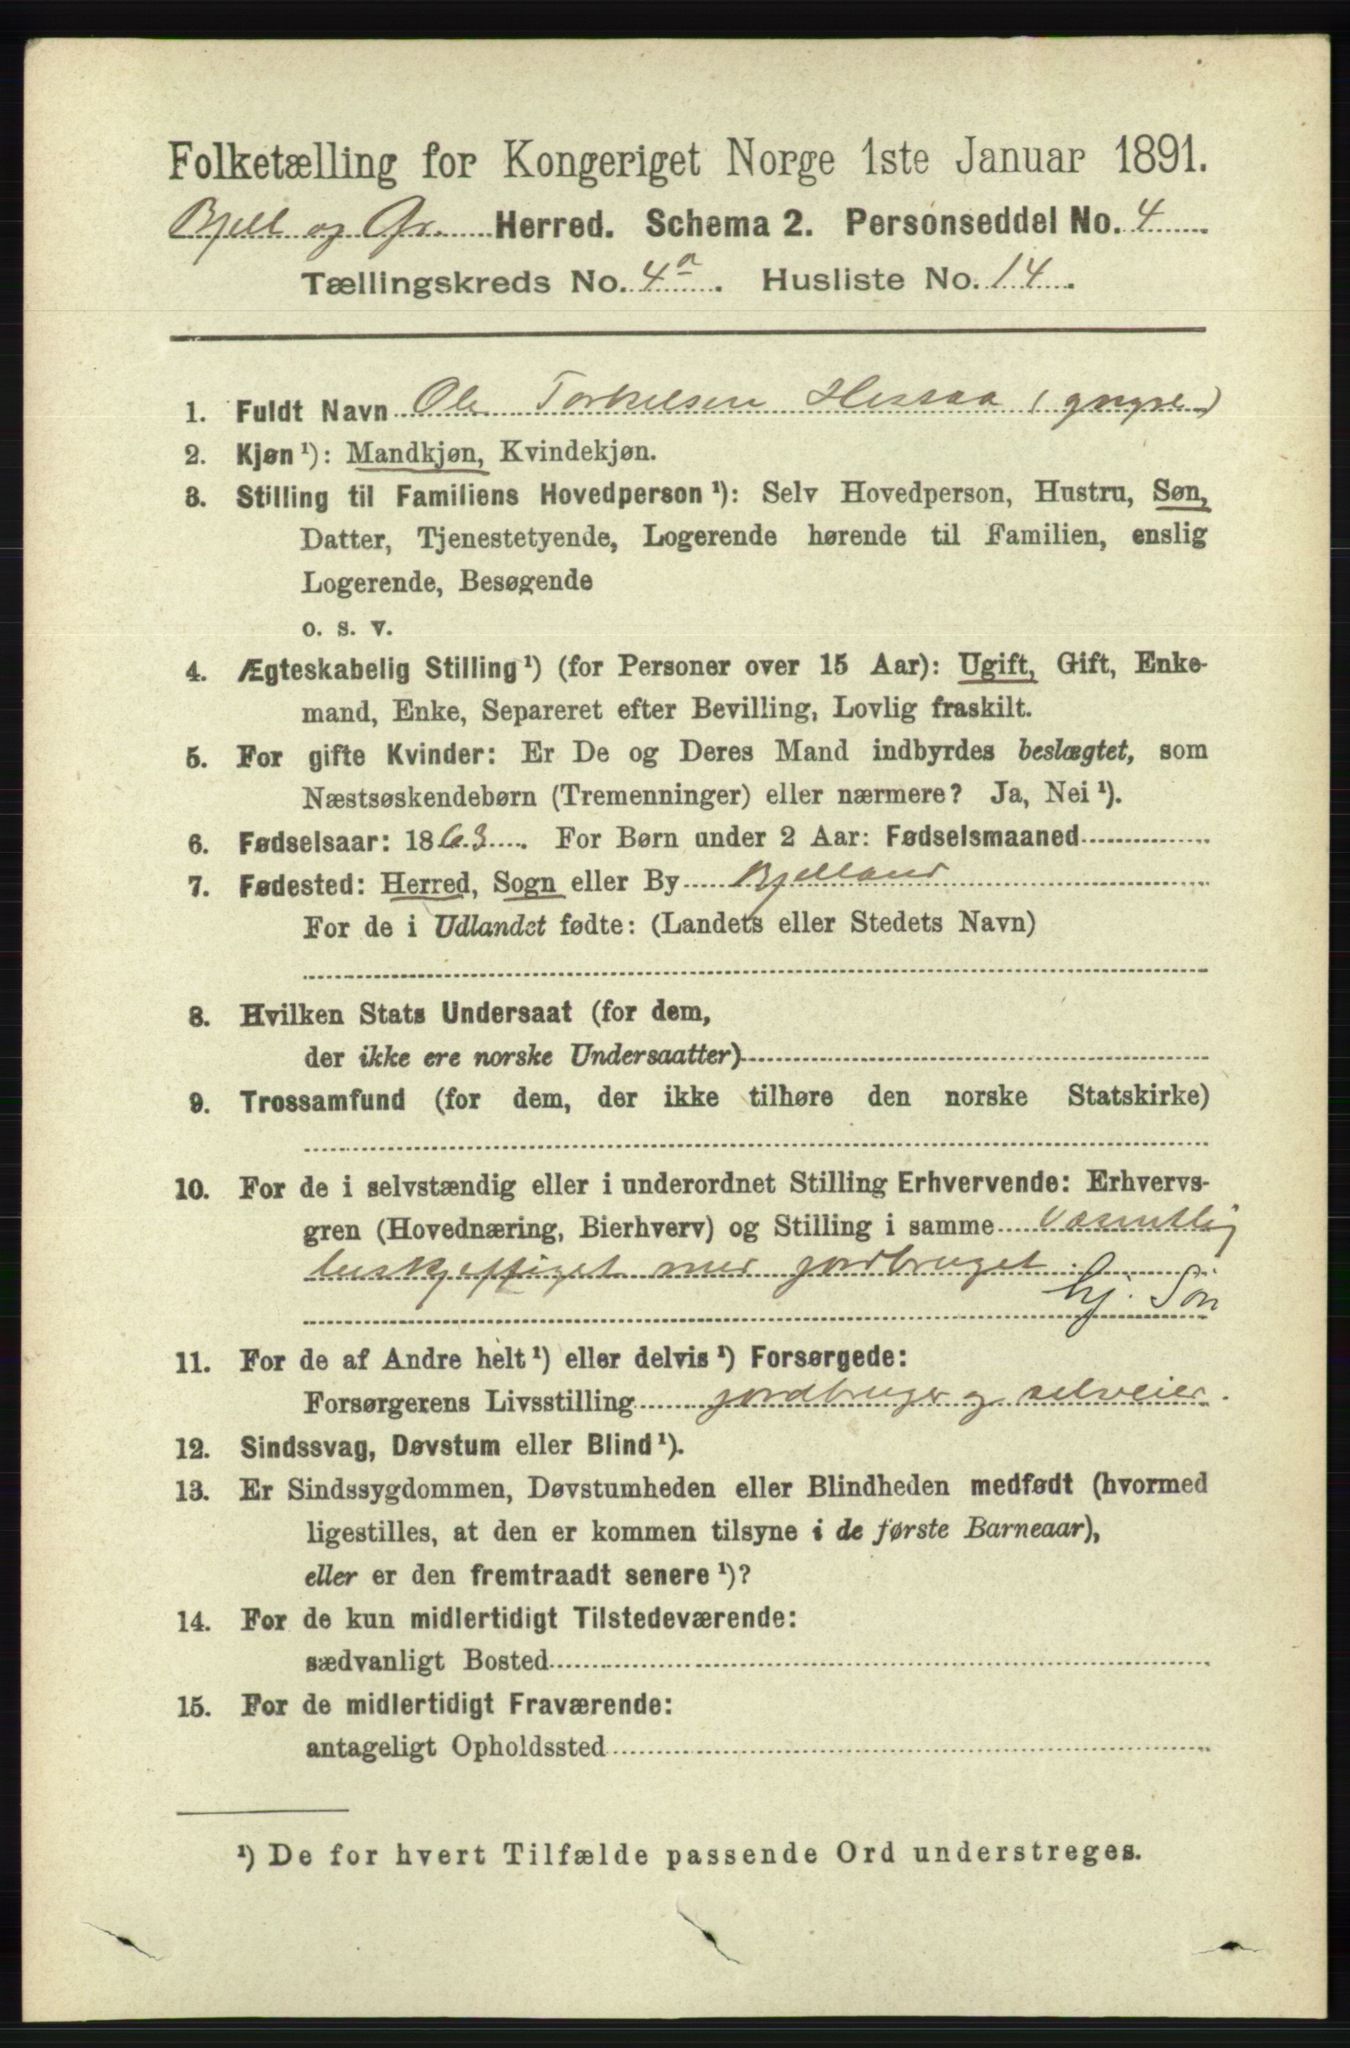 Folketælling for Kongeriget Norge 1ste Januar 1891.
Bjell og Gr. Herred. Schema 2. Personseddel No. 4
Tællingskreds No. 4a. Husliste No. 14.
1. Fuldt Navn Ole Torkelsen Hessaa (yngre)
2. Kjøn¹): Mandkjøn, Kvindekjøn.
3. Stilling til Familiens Hovedperson¹): Selv Hovedperson, Hustru, Søn,
Datter, Tjenestetyende, Logerende hørende til Familien, enslig
Logerende, Besøgende
o. s. v.
4. Ægteskabelig Stilling¹) (for Personer over 15 Aar): Ugift, Gift, Enke-
mand, Enke, Separeret efter Bevilling, Lovlig fraskilt.
5. For gifte Kvinder: Er De og Deres Mand indbyrdes beslægtet, som
Næstsøskendebørn (Tremenninger) eller nærmere? Ja, Nei¹).
6. Fødselsaar: 1863. For Børn under 2 Aar: Fødselsmaaned
7. Fødested: Herred, Sogn eller By Bjelland
For de i Udlandet fødte: (Landets eller Stedets Navn)
8. Hvilken Stats Undersaat (for dem,
der ikke ere norske Undersaatter)
9. Trossamfund (for dem, der ikke tilhøre den norske Statskirke)
10. For de i selvstændig eller i underordnet Stilling Erhvervende: Erhvervs-
gren (Hovednæring, Bierhverv) og Stilling i samme væsentlig
beskjeftiget med jordbruget
hj. Søn
11. For de af Andre helt¹) eller delvis¹) Forsørgede:
Forsørgerens Livsstilling jordbruger og selveier.
12. Sindssvag, Døvstum eller Blind¹).
13. Er Sindssygdommen, Døvstumheden eller Blindheden medfødt (hvormed
ligestilles, at den er kommen tilsyne i de første Barneaar),
eller er den fremtraadt senere¹)?
14. For de kun midlertidigt Tilstedeværende:
sædvanligt Bosted
15. For de midlertidigt Fraværende:
antageligt Opholdssted
¹) De for hvert Tilfælde passende Ord understreges.